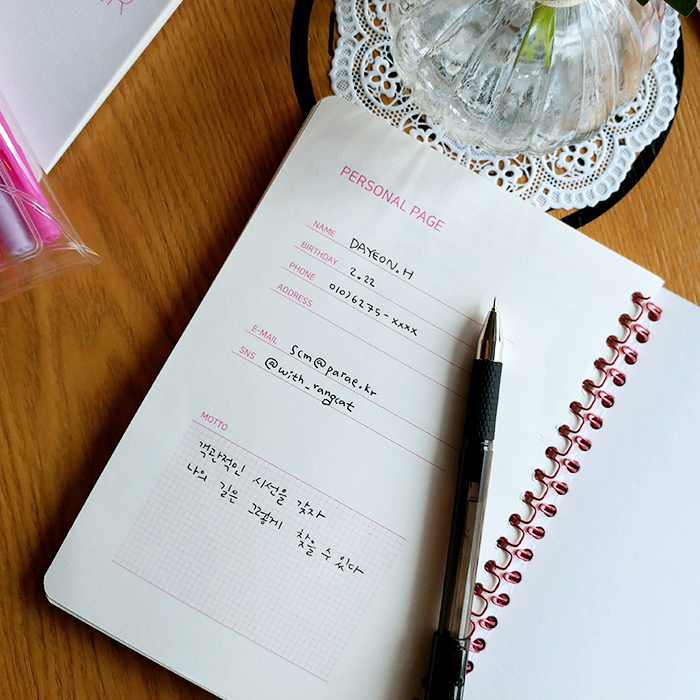 PERSONAL PAGE
NAME DAYEON.H
BIRTHDAY 2.22
PHONE 010)6275-xxxx
ADDRESS
E-MAIL scm@parae.kr
SNS @with_rangcat
MOTTO
객관적인 시선을 갖자
나의 길은 그렇게 찾을 수 있다